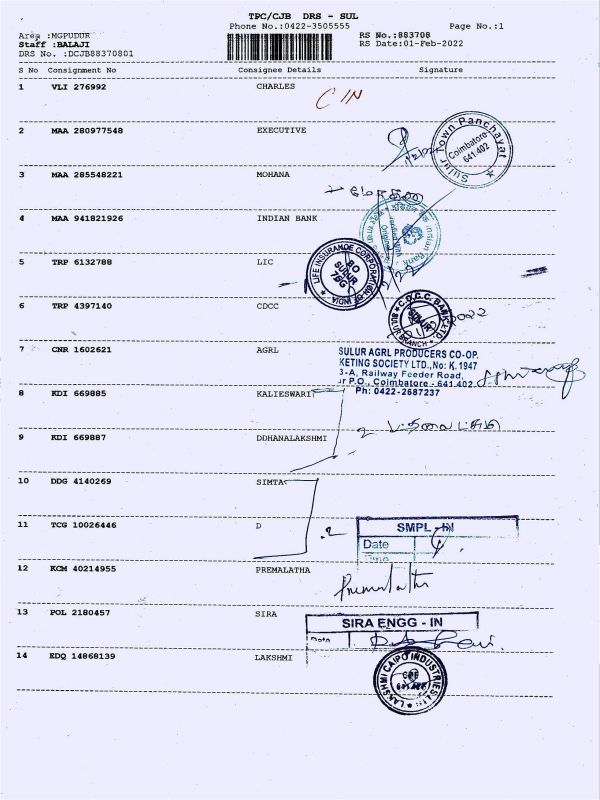 TPC/CJB DRS - SUL
Phone No.:0422-3505555 Page No.:1
Area :MGPUDUR RS No.:883708
Staff :BALAJI RS Date:01-Feb-2022
DRS No. :DCJB88370801
S No Consignment No Consignee Details Signature
1 VLI 276992 CHARLES
C IN
2 MAA 280977548 EXECUTIVE
Sulur Town Panchayat
Coimbatore-
641 402
3 MAA 285548221 MOHANA
4 MAA 941821926 INDIAN BANK
Indian Bank
5 TRP 6132788 LIC
LIFE INSURANCE CORPORATION OF INDIA
BO
SULUR
76G
6 TRP 4397140 CDCC
C.D.C.C. BANK LTD
SULUR BRANCH
7 CNR 1602621 AGRL
SULUR AGRL PRODUCERS CO-OP.
KETING SOCIETY LTD.,No: K.1947
3-A, Railway Feeder Road,
ur P.O., Coimbatore - 641 402.
Ph: 0422-2687237
8 KDI 669885 KALIESWARI
9 KDI 669887 DDHANALAKSHMI
10 DDG 4140269 SIMTA
11 TCG 10026446 D
SMPL - IN
Date
Time
12 KCM 40214955 PREMALATHA
Premalatha
13 POL 2180457 SIRA
SIRA ENGG - IN
14 EDQ 14868139 LAKSHMI
LAKSHMI CAIPO INDUSTRIES LTD